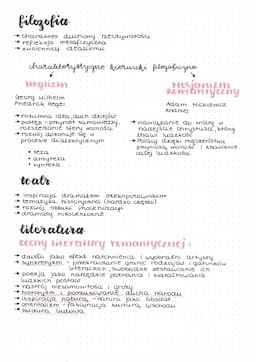 filozofia
→ charakter duchowy rzeczywistości
→ refleksja metafizyczna
→ zwolennicy idealizmu
charakterystyczne kierunki filozoficzne
Heglizm
Mesjanizm
romantyczny
Georg Wilhelm
Friedrich Hegel
Adam Mickiewicz
→ rozumna idea, duch dziejów
→ postęp - przyrost samowiedzy,
rozszerzanie sfery wolności
→ rozwój dokonuje się w
procesie dialektycznym
• teza
• antyteza
• synteza
→ nawiązanie do wiary w
nadejście Chrystusa, który
zbawi ludzkość
→ Polacy dzięki męczeństwu
przyniosą wolność i zbawienie
całej ludzkości
teatr
→ inspiracja dramatem szekspirowskim
→ tematyka historyczna (bardzo często)
→ rozwój sztuki inscenizacji
→ dramaty niesceniczne
literatura
cechy literatury romantycznej:
→ dzieło jako efekt natchnienia i wyobraźni artysty
→ synkretyzm - przełamywanie granic rodzajów i gatunków
literackich, swobodne zestawianie ich
→ poezja jako narzędzie poznania i kształtowania
ludzkich postaw
→ nastrój niesamowitości i grozy
→ historyzm i poszukiwanie ducha narodu
→ inspiracja naturą - natura jako absolut
→ orientalizm - fascynacja kulturą wschodu
→ kultura ludowa